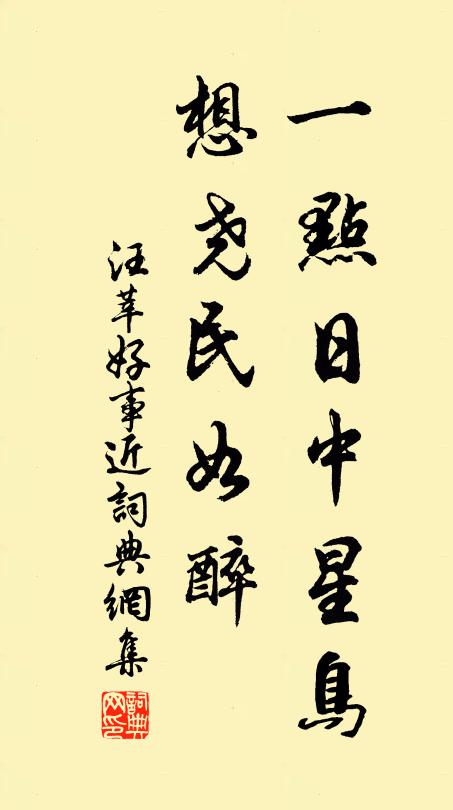 一點日中星鳥
想尧民如醉
汪莘好事近詞典網集
詞典网印